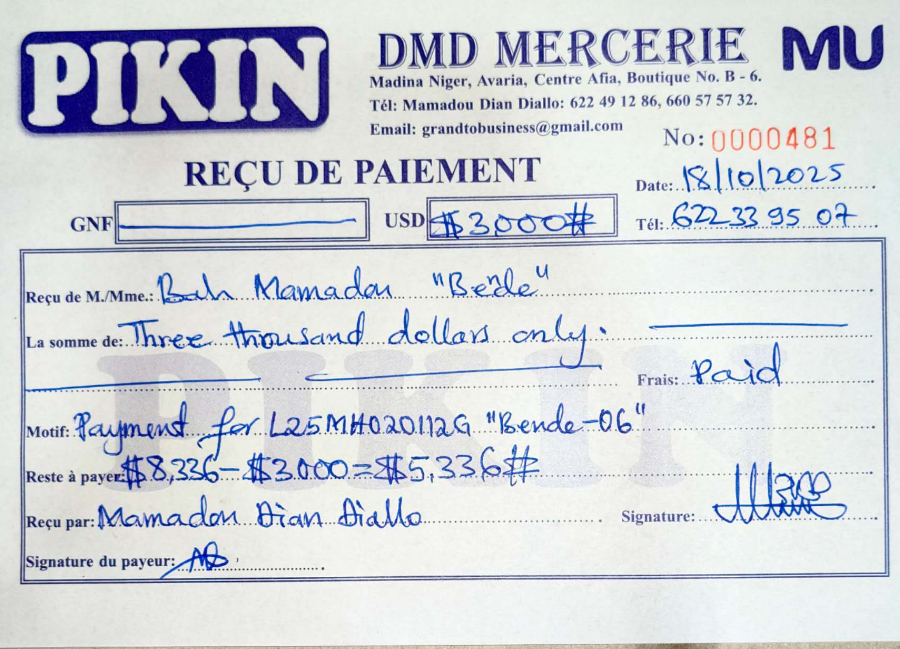 PIKIN
DMD MERCERIE MU
Madina Niger, Avaria, Centre Afia, Boutique No. B - 6.
Tél: Mamadou Dian Diallo: 622 49 12 86, 660 57 57 32.
Email: grandtobusiness@gmail.com
No: 0000481
REÇU DE PAIEMENT
Date: 18/10/2025
GNF USD $3,000#
Tél: 622 33 95 07
Reçu de M./Mme.: Bah Mamadou "Bende"
La somme de: Three thousand dollars only.
Frais: Paid
Motif: Payment for L25MH020112G "Bende-06"
Reste à payer: $8,336-$3000=$5,336#
Reçu par: Mamadou Dian Diallo Signature:
Signature du payeur:
PIKIN